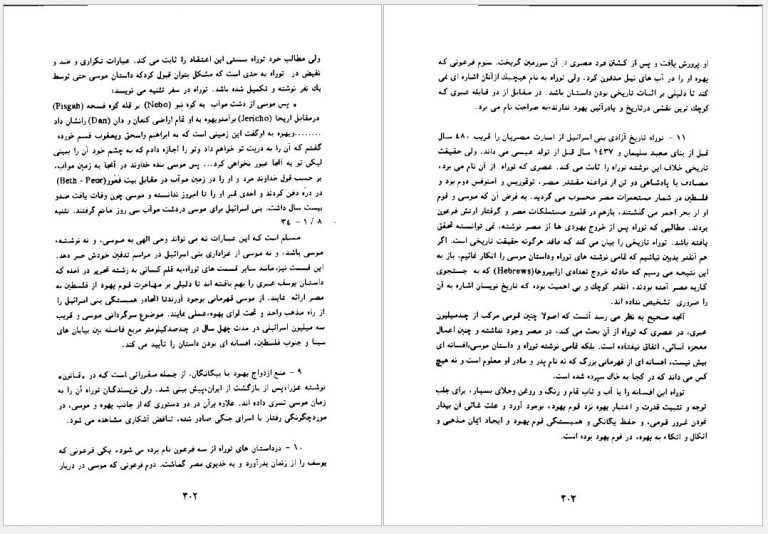 ولی مطالب خود توراه سستی این اعتقاد را ثابت می کند. عبارات تکراری و ضد و
نقیض در توراه به حدی است که مشکل بتوان قبول کردکه داستان موسی حتی توسط
یك نفر نوشته و تکمیل شده باشد. توراه در سفر تثنیه می نویسد:
« پس موسی از دشت موآب به کوه نبو (Nebo) بر قله کوه فسحه (Pisgah)
درمقابل اریحا (Jericho) برآمدویهوه به او تمام اراضی کنعان و دان (Dan) رانشان داد
........ویهوه به اوگفت این زمینی است که به ابراهیم واسحق ویعقوب قسم خورده
گفتم که آن را به ذریت تو خواهم داد وتو را اجازه دادم که به چشم خود آن را ببینی
لیکن تو به آنجا عبور نخواهی کرد... پس موسی بنده خداوند در آنجا به زمین موآب،
بر حسب قول خداوند مرد و او را در زمین موآب در مقابل بیت فغور(Beth - Peor)
در دره دفن کردند و احدی قبر او را تا امروز ندانسته و موسی چون وفات یافت صدو
بیست سال داشت. بنی اسرائیل برای موسی دردشت موآب سی روز ماتم گرفتند. تثنیه
۸ / ۱ - ۳٤
مسلم است که این عبارات نه می تواند وحی الهی به موسی، و نه نوشته
موسی باشد، و نه موسی از عزاداری بنی اسرائیل در مراسم تدفین خودش خبر دهد.
این قسمت نیز،مانند سایر قسمت های توراه،به قلم کسانی به رشته تحریر در آمده که
داستان یوسف عبری را بهم بافته اند تا دلیلی بر مهاجرت قوم یهود از فلسطین به
مصر ارائه نمایند. از موسی قهرمانی بوجود آوردندتا اتحادو همبستگی بنی اسرائیل را
از راه مذهب واحد و تحت لوای یهوه،عملی نمایند. موضوع سرگردانی موسی و قریب
سه میلیون اسرائیلی در مدت چهل سال در چندصدکیلومتر مربع فاصله بین بیابان های
سینا و جنوب فلسطین، افسانه ای بودن داستان را تأیید می کند.
۹ - منع ازدواج یهود با بیگانگان، از جمله مقرراتی است که در «قانون»
نوشته عزرا،پس از بازگشت از ایران،پیش بینی شد. ولی نویسندگان توراه آن را به
زمان موسی تسری داده اند. علاوه برآن در دو دستوری که از جانب یهوه و موسی، در
موردچگونگی رفتار با اسرای جنگی صادر شده، تناقض آشکاری مشاهده می شود.
۱۰ - درداستان های توراه از سه فرعون نام برده می شود، یکی فرعونی که
یوسف را از زندان بدرآورد و به خدیوی مصر گماشت. دوم فرعونی که موسی در دربار
۳۰۲
او پرورش یافت و پس از کشتن فرد مصری از آن سرزمین گریخت. سوم فرعونی که
یهوه او را در آب های نیل مدفون کرد. ولی توراه به نام هیچیك ازآنان اشاره ای نمی
کند تا دلیلی بر اثبات تاریخی بودن داستان باشد. در مقابل از دو قابله عبری که
کوچك ترین نقشی درتاریخ و یادرآئین یهود ندارند،به صراحت نام می برد.
۱۱ - توراه تاریخ آزادی بنی اسرائیل از اسارت مصریان را قریب ۴۸۰ سال
قبل از بنای معبد سلیمان و ۱۴۳۷ سال قبل از تولد عیسی می داند. ولی حقیقت
تاریخی خلاف این نوشته توراه را ثابت می کند. عصری که توراه از آن نام می برد،
مصادف با پادشاهی دو تن از فراعنه مقتدر مصر، توتموزیس و آمنوفس دوم بود و
فلسطین در شمار مستعمرات مصر محسوب می گردید. به فرض آن که موسی و قوم
او از بحر احمر می گذشتند، بازهم در قلمرو مستملکات مصر و گرفتار ارتش فرعون
بودند. مطالبی که توراه پس از خروج یهودی ها از مصر نوشته، نمی توانسته تحقق
یافته باشد. توراه تاریخی را بیان می کند که فاقد هرگونه حقیقت تاریخی است. اگر
هم آنقدر بدبین نباشیم که تمامی نوشته های توراه وداستان موسی را انکار نمائیم، باز به
این نتیجه می رسیم که حادثه خروج تعدادی ازابیروها(Hebrews) که به جستجوی
کاربه مصر آمده بودند، آنقدر کوچك و بی اهمیت بوده که تاریخ نویسان اشاره به آن
را ضروری تشخیص نداده اند.
آنچه صحیح به نظر می رسد آنست که اصولا چنین قومی مرکب از چندمیلیون
عبری، در عصری که توراه از آن بحث می کند، در مصر وجود نداشته و چنین اعمال
معجزه آسائی، اتفاق نیفتاده است. بلکه تمامی نوشته توراه و داستان موسی،افسانه ای
بیش نیست، افسانه ای از قهرمانی بزرگ که نه نام پدر و مادر او معلوم است و نه هیچ
کس می داند که در کجا به خاك سپرده شده است.
توراه این افسانه را با آب و تاب تمام و رنگ و روغن وجلای بسیار، برای جلب
توجه و تثبیت قدرت و اعتبار یهوه نزد قوم یهود، بوجود آورد و علت غائی آن بیدار
نمودن غرور قومی، و حفظ یگانگی و همبستگی قوم یهود و ایجاد ایمان مذهبی و
اتکال و اتکاء به یهوه، در قوم یهود بوده است.
۳۰۳